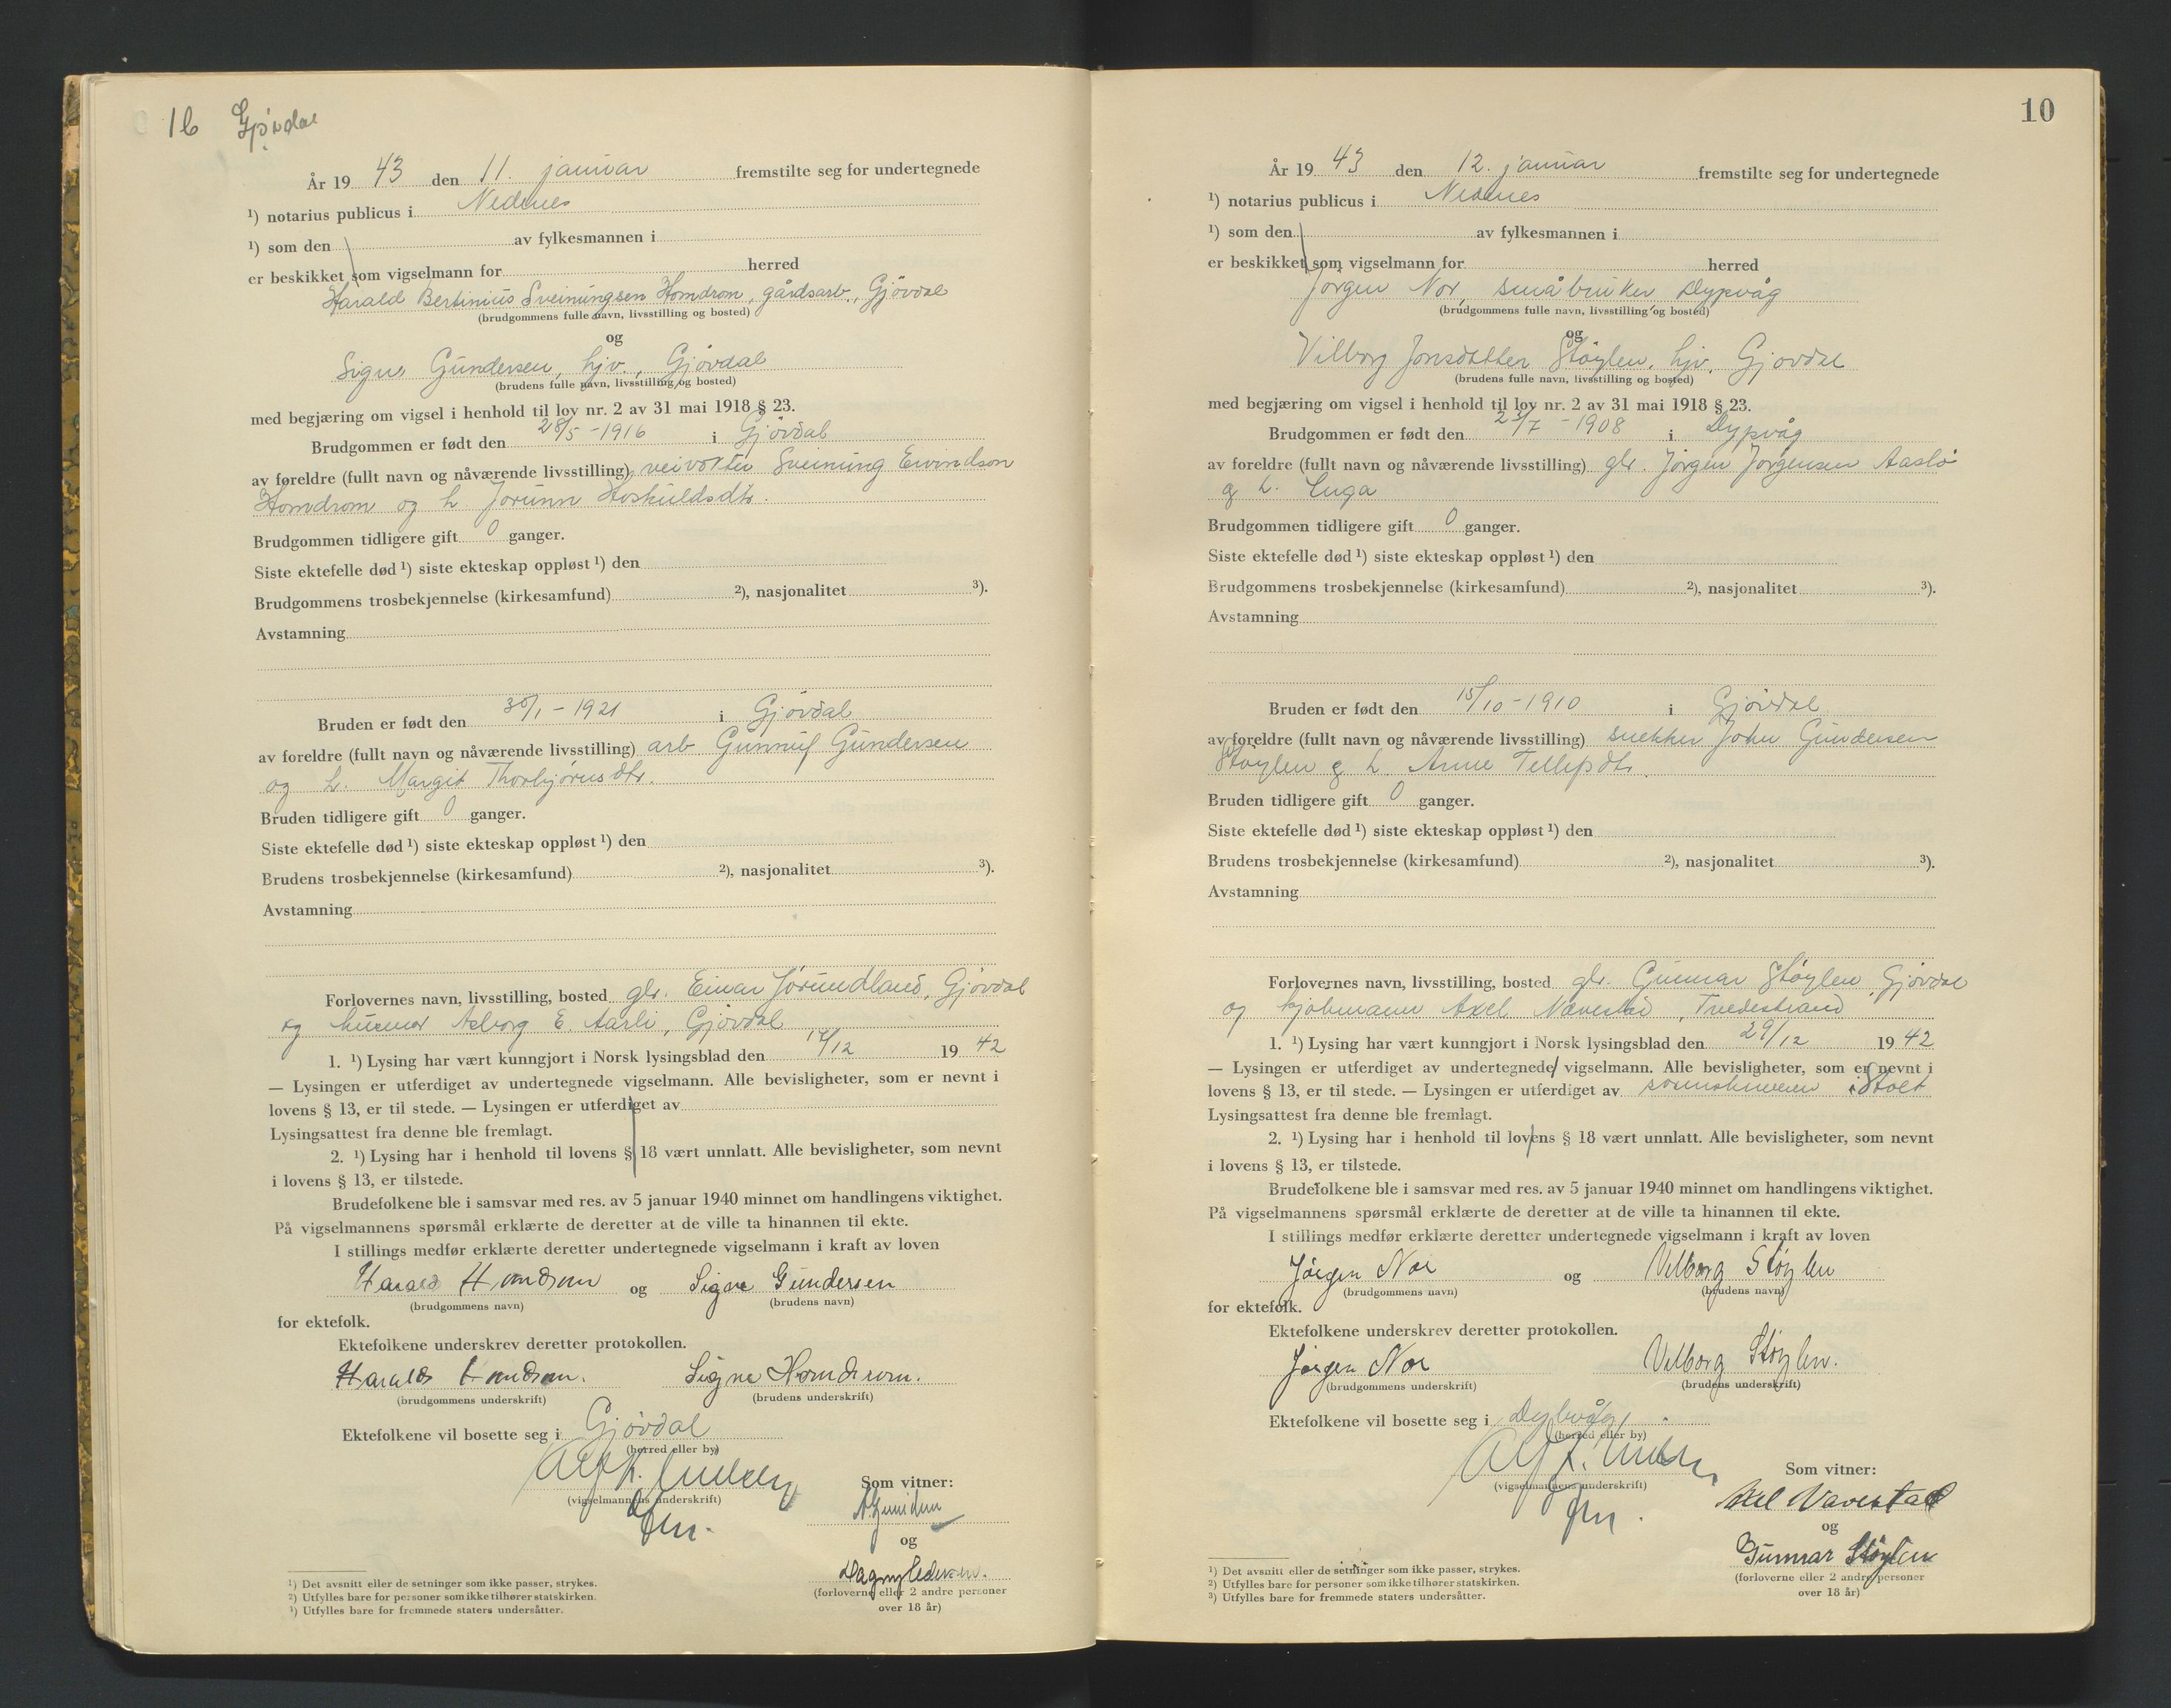 16 Gjövdal
År 1943 den 11. januar fremstilte seg for undertegnede
¹) notarius publicus i Nedenes
¹) som den av fylkesmannen i
er beskikket som vigselmann for herred
Harald Bertinius Sveinungsen Homdrom, gårdsarb., Gjövdal
(brudgommens fulle navn, livsstilling og bosted)
og
Signe Gundersen, hjv., Gjövdal
(brudens fulle navn, livsstilling og bosted)
med begjæring om vigsel i henhold til lov nr. 2 av 31 mai 1918 § 23.
Brudgommen er født den 28/5 - 1916 i Gjövdal
av foreldre (fullt navn og nåværende livsstilling) veivokter Sveinung Eivindson
Homdrom og h. Jorunn Hoskuldsdtr.
Brudgommen tidligere gift 0 ganger.
Siste ektefelle død ¹) siste ekteskap oppløst ¹) den
Brudgommens trosbekjennelse (kirkesamfund) ²), nasjonalitet ³).
Avstamning
Bruden er født den 30/1 - 1921 i Gjövdal
av foreldre (fullt navn og nåværende livsstilling) arb Gunnuf Gundersen
og h. Margit Thorbjörnsdtr.
Bruden tidligere gift 0 ganger.
Siste ektefelle død ¹) siste ekteskap oppløst ¹) den
Brudens trosbekjennelse (kirkesamfund) ²), nasjonalitet ³).
Avstamning
Forlovernes navn, livsstilling, bosted gbr. Einar Jörundland, Gjövdal
og husmor Asborg E. Aasli, Gjövdal
1. ¹) Lysing har vært kunngjort i Norsk lysingsblad den 14/12 1942
— Lysingen er utferdiget av undertegnede vigselmann. Alle bevisligheter, som er nevnt i
lovens § 13, er til stede. — Lysingen er utferdiget av
Lysingsattest fra denne ble fremlagt.
2. ¹) Lysing har i henhold til lovens § 18 vært unnlatt. Alle bevisligheter, som nevnt
i lovens § 13, er tilstede.
Brudefolkene ble i samsvar med res. av 5 januar 1940 minnet om handlingens viktighet.
På vigselmannens spørsmål erklærte de deretter at de ville ta hinannen til ekte.
I stillings medfør erklærte deretter undertegnede vigselmann i kraft av loven
Harald Homdrom og Signe Gundersen
(brudgommens navn) (brudens navn)
for ektefolk.
Ektefolkene underskrev deretter protokollen.
Harald Homdrom. Signe Homdrom.
(brudgommens underskrift) (brudens underskrift)
Ektefolkene vil bosette seg i Gjövdal
(herred eller by)
(vigselmannens underskrift)
Som vitner:
og
Dagny Pedersen.
(forloverne eller 2 andre personer
over 18 år)
¹) Det avsnitt eller de setninger som ikke passer, strykes.
²) Utfylles bare for personer som ikke tilhører statskirken.
³) Utfylles bare for fremmede staters undersåtter.
10
År 1943 den 12. januar fremstilte seg for undertegnede
¹) notarius publicus i Nedenes
¹) som den av fylkesmannen i
er beskikket som vigselmann for herred
Jörgen Nor, småbruker Dypvåg
(brudgommens fulle navn, livsstilling og bosted)
og
Vilborg Jonsdatter Støylen, hjv. Gjövdal
(brudens fulle navn, livsstilling og bosted)
med begjæring om vigsel i henhold til lov nr. 2 av 31 mai 1918 § 23.
Brudgommen er født den /7 - 1908 i Dypvåg
av foreldre (fullt navn og nåværende livsstilling) gbr. Jörgen Jörgensen Aaslö
og h. Inga
Brudgommen tidligere gift 0 ganger.
Siste ektefelle død ¹) siste ekteskap oppløst ¹) den
Brudgommens trosbekjennelse (kirkesamfund) ²), nasjonalitet ³).
Avstamning
Bruden er født den 15/10 - 1910 i Gjövdal
av foreldre (fullt navn og nåværende livsstilling) snekker John Gundersen
Støylen og h. Anne Tellefsdtr.
Bruden tidligere gift 0 ganger.
Siste ektefelle død ¹) siste ekteskap oppløst ¹) den
Brudens trosbekjennelse (kirkesamfund) ²), nasjonalitet ³).
Avstamning
Forlovernes navn, livsstilling, bosted gbr. Gunnar Støylen, Gjövdal
og kjöbmann Axel Navestad, Tvedestrand
1. ¹) Lysing har vært kunngjort i Norsk lysingsblad den 29/12 1942
— Lysingen er utferdiget av undertegnede vigselmann. Alle bevisligheter, som er nevnt i
lovens § 13, er til stede. — Lysingen er utferdiget av i Holt
Lysingsattest fra denne ble fremlagt.
2. ¹) Lysing har i henhold til lovens § 18 vært unnlatt. Alle bevisligheter, som nevnt
i lovens § 13, er tilstede.
Brudefolkene ble i samsvar med res. av 5 januar 1940 minnet om handlingens viktighet.
På vigselmannens spørsmål erklærte de deretter at de ville ta hinannen til ekte.
I stillings medfør erklærte deretter undertegnede vigselmann i kraft av loven
Jörgen Nor og Vilborg Støylen
(brudgommens navn) (brudens navn)
for ektefolk.
Ektefolkene underskrev deretter protokollen.
Jörgen Nor Vilborg Støylen.
(brudgommens underskrift) (brudens underskrift)
Ektefolkene vil bosette seg i Dybvåg
(herred eller by)
(vigselmannens underskrift)
Som vitner:
Axel Navestad
og
Gunnar Støylen
(forloverne eller 2 andre personer
over 18 år)
¹) Det avsnitt eller de setninger som ikke passer, strykes.
²) Utfylles bare for personer som ikke tilhører statskirken.
³) Utfylles bare for fremmede staters undersåtter.